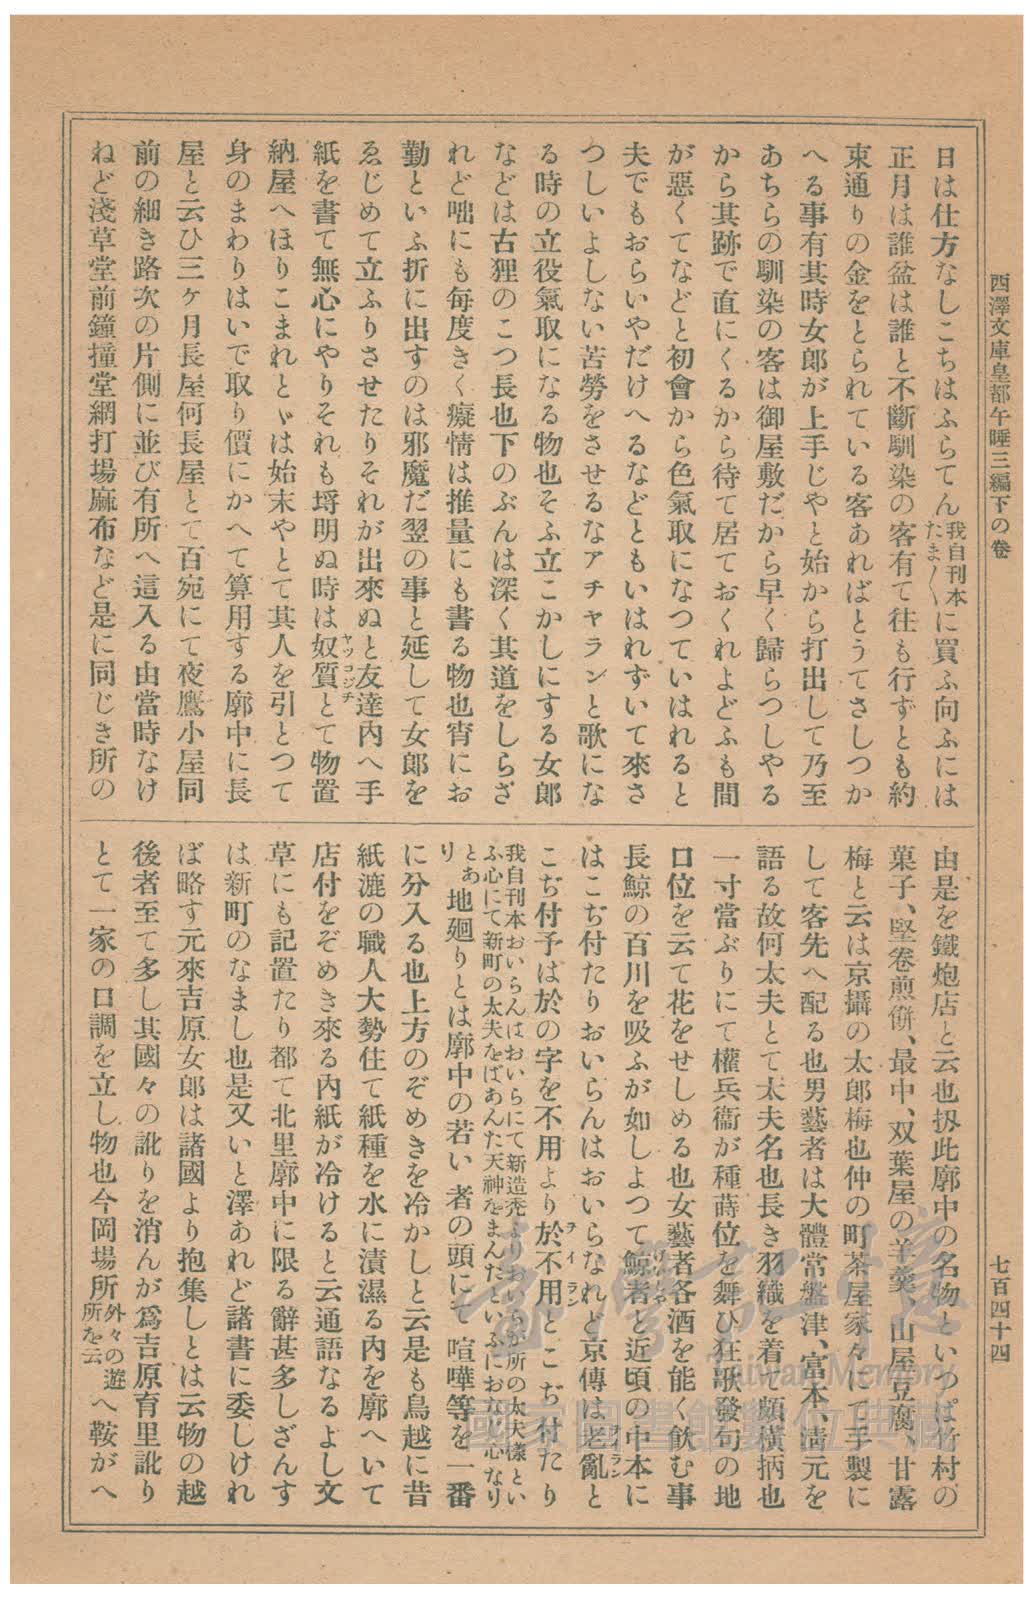 西澤文庫皇都午睡三編下の卷
七百四十四
日は仕方なしこちはふらてん我自刊本たま〱に買ふ向ふには
正月は誰盆は誰と不斷馴染の客有て往も行ずとも約
束通りの金をとられている客あればとうてさしつか
へる事有其時女郎が上手じやと始から打出して乃至
あちらの馴染の客は御屋敷だから早く歸らつしやる
から其跡で直にくるから待て居ておくれよどふも間
が惡くてなどと初會から色氣取になつていはれると
夫でもおらいやだけへるなどともいはれずいて來さ
つしいよしない苦勞をさせるなアチャランと歌にな
る時の立役氣取になる物也そふ立こかしにする女郎
などは古狸のこつ長也下のぶんは深く其道をしらざ
れど咄にも毎度きく癡情は推量にも書る物也宵にお
勤といふ折に出すのは邪魔だ翌の事と延して女郎を
ゑじめて立ふりさせたりそれが出來ぬと友達内へ手
紙を書て無心にやりそれも埒明ぬ時は奴質ヤッコジチとて物置
納屋へほりこまれとゞは始末やとて其人を引とつて
身のまわりはいで取り價にかへて算用する廓中に長
屋と云ひ三ヶ月長屋何長屋とて百宛にて夜鷹小屋同
前の細き路次の片側に並び有所へ這入る由當時なけ
ねど淺草堂前鐘撞堂網打場麻布など是に同じき所の
由是を鐵炮店と云也扨此廓中の名物といつぱ竹村の
菓子、堅卷煎餠、最中、双葉屋の羊羹、山屋豆腐、甘露
梅と云は京攝の太郎梅也仲の町茶屋家々にて手製に
して客先へ配る也男藝者は大體常盤津、富本、淸元を
語る故何太夫とて太夫名也長き羽織を着て頗橫柄也
一寸當ぶりにて權兵衞が種蒔位を舞ひ狂歌發句の地
口位を云て花をせしめる也女藝者各酒を能く飮む事
長鯨の百川を吸ふが如しよつて鯨者げいしやと近頃の中本に
はこぢ付たりおいらんはおいらなれど京傳は老亂ヲイランと
こぢ付予は於の字を不用より於不用ヲイランとこぢ付たり
我自刊本おいらんはおいらにて新造禿よりおいらが所の太夫樣とい
ふ心にて新町の太夫をばあんた天神をまんたといふにおなじ心なり
とあり地廻りとは廓中の若い者の頭にて喧嘩等を一番
に分入る也上方のぞめきを冷かしと云是も鳥越に昔
紙漉の職人大勢住て紙種を水に漬濕る内を廓へいて
店付をぞめき來る内紙が冷けると云通語なるよし文
草にも記置たり都て北里廓中に限る辭甚多しざんす
は新町のなまし也是又いと澤あれど諸書に委しけれ
ば略す元來吉原女郎は諸國より抱集しとは云物の越
後者至て多し其國々の訛りを消んが爲吉原育里訛り
とて一家の口調を立し物也今岡場所外々の遊所を云へ鞍がへ
臺灣記憶
Taiwan Memory
國家圖書館數位典藏